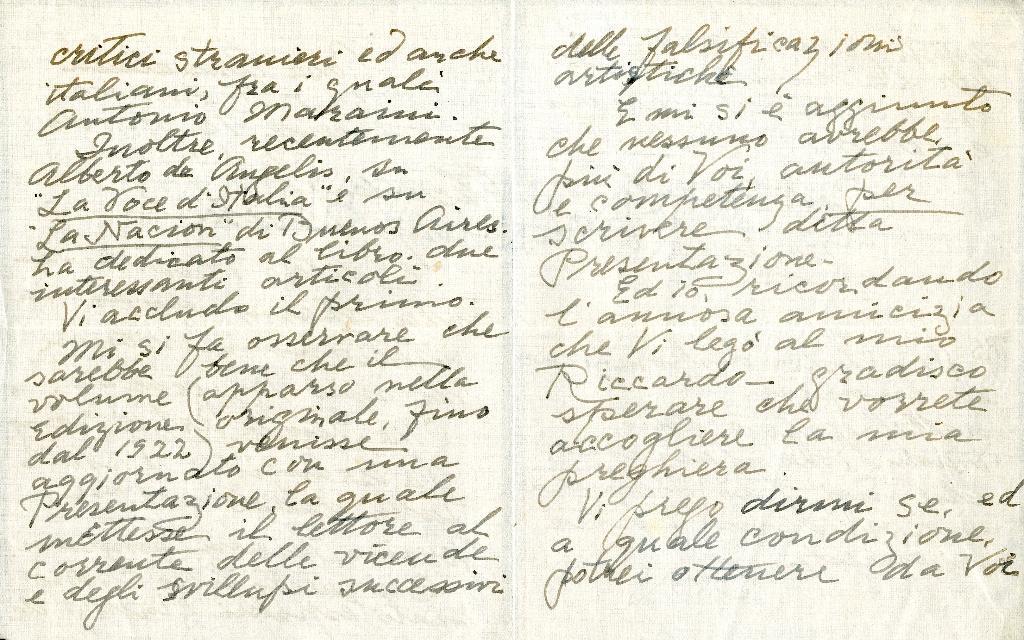 critici stranieri ed anche
italiani, fra i quali
Antonio Maraini.
Inoltre, recentemente
Alberto de Angelis, su
"La Voce d'Italia" e su
"La Nacion" di Buenos Aires.
ha dedicato al libro. due
interessanti articoli.
Vi accludo il primo.
Mi si fa osservare che
sarebbe bene che il
volume (apparso nella
edizione originale, fino
dal 1922) venisse
aggiornato con una
Presentazione, la quale
mettesse il lettore al
corrente delle vicende
e degli sviluppi successivi
delle falsificazioni
artistiche
E mi si è aggiunto
che nessuno avrebbe,
più di Voi, autorità
e competenza, per
scrivere detta
Presentazione.
Ed io, ricordando
l'annosa amicizia
che Vi legò al mio
Riccardo gradisco
sperare che vorrete
accogliere la mia
preghiera
Vi prego dirmi se, ed
a quale condizione,
potrei ottenere da Voi